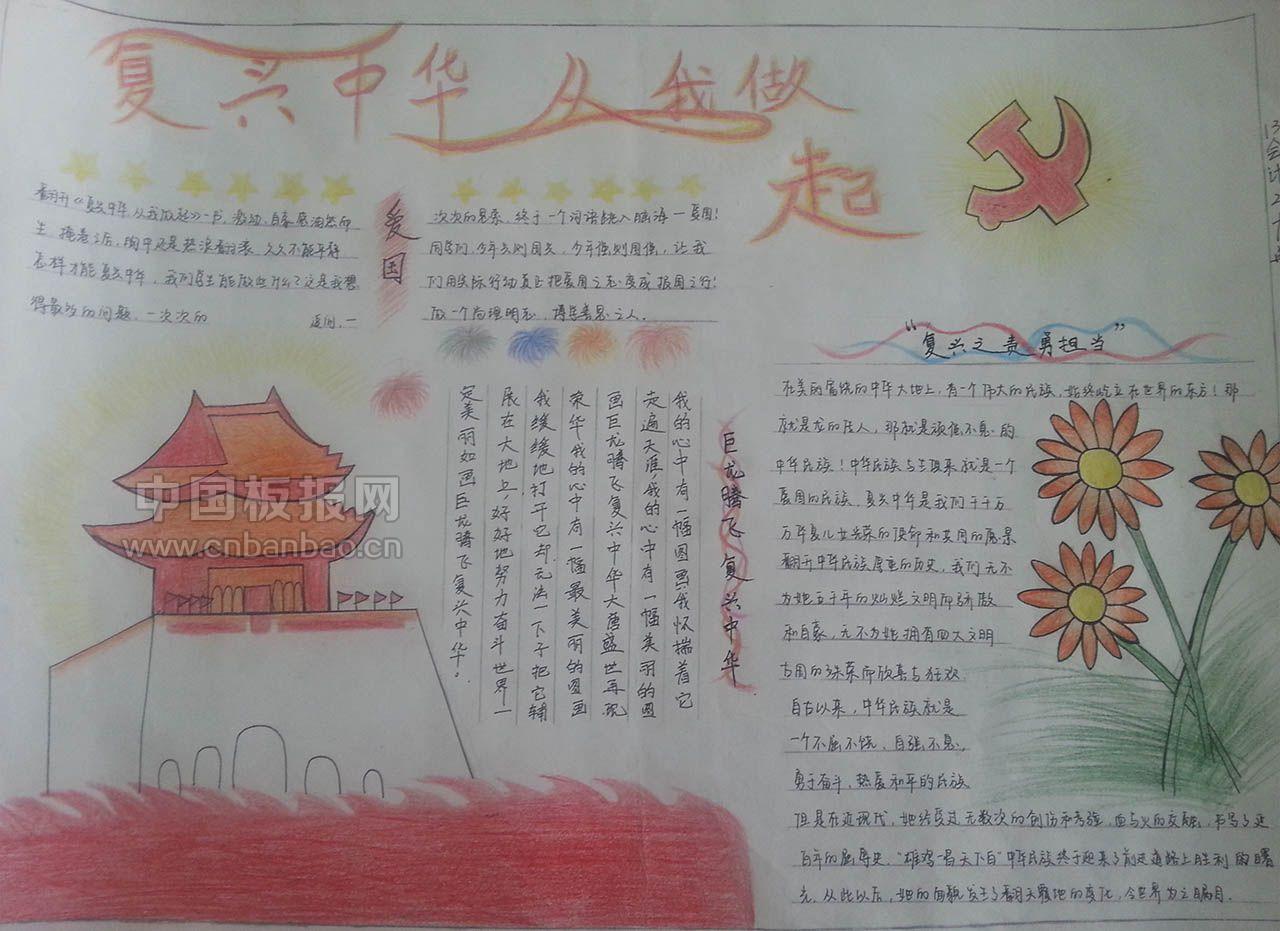 复兴中华 从我做
起
翻开《复兴中华从我做起》一书,激动、自豪感油然而
生 掩卷之后,胸中还是热浪翻滚,久久不能平静
怎样才能复兴中华,我们学生能做些什么?这是我想
得最多的问题,一次次的 追问,一
爱国
次次的思索,终于一个词语跳入脑海—爱国!
同学们,今年少则国少,今年强则国强,让我
们用实际行动真正把爱国之志变成报国之行!
做一个尚理明志,博学善思之人。
巨龙腾飞复兴中华
我的心中有一幅图画我怀揣着它
走遍天涯我的心中有一幅美丽的图
画巨龙腾飞复兴中华大唐盛世再现
荣华我的心中有一幅最美丽的图画
我缓缓地打开它却无法一下子把它铺
展在大地上,好好地努力奋斗世界一
定美丽如画巨龙腾飞复兴中华。
“复兴之责勇担当”
在美丽富饶的中华大地上,有一个伟大的民族,始终屹立在世界的东方!那
就是龙的传人,那就是顽强不息的
中华民族!中华民族与生俱来就是一个
爱国的民族,复兴中华是我们千千万
万华夏儿女光荣的使命和共同的愿景
翻开中华民族厚重的历史,我们无不
为她五千年的灿烂文明而骄傲
和自豪,无不为她拥有四大文明
古国的殊荣而欣喜与狂欢
自古以来,中华民族就是
一个不屈不饶、自强不息,
勇于奋斗,热爱和平的民族
但是在近现代,她经受过无数次的创伤和考验,血与火的交融,书写了近
百年的屈辱史,“雄鸡一唱天下白”中华民族终于迎来了前进道路上胜利的曙
光,从此以后,她的面貌发生了翻天覆地的变化,令世界为之瞩目.
中国板报网
www.cnbanbao.cn